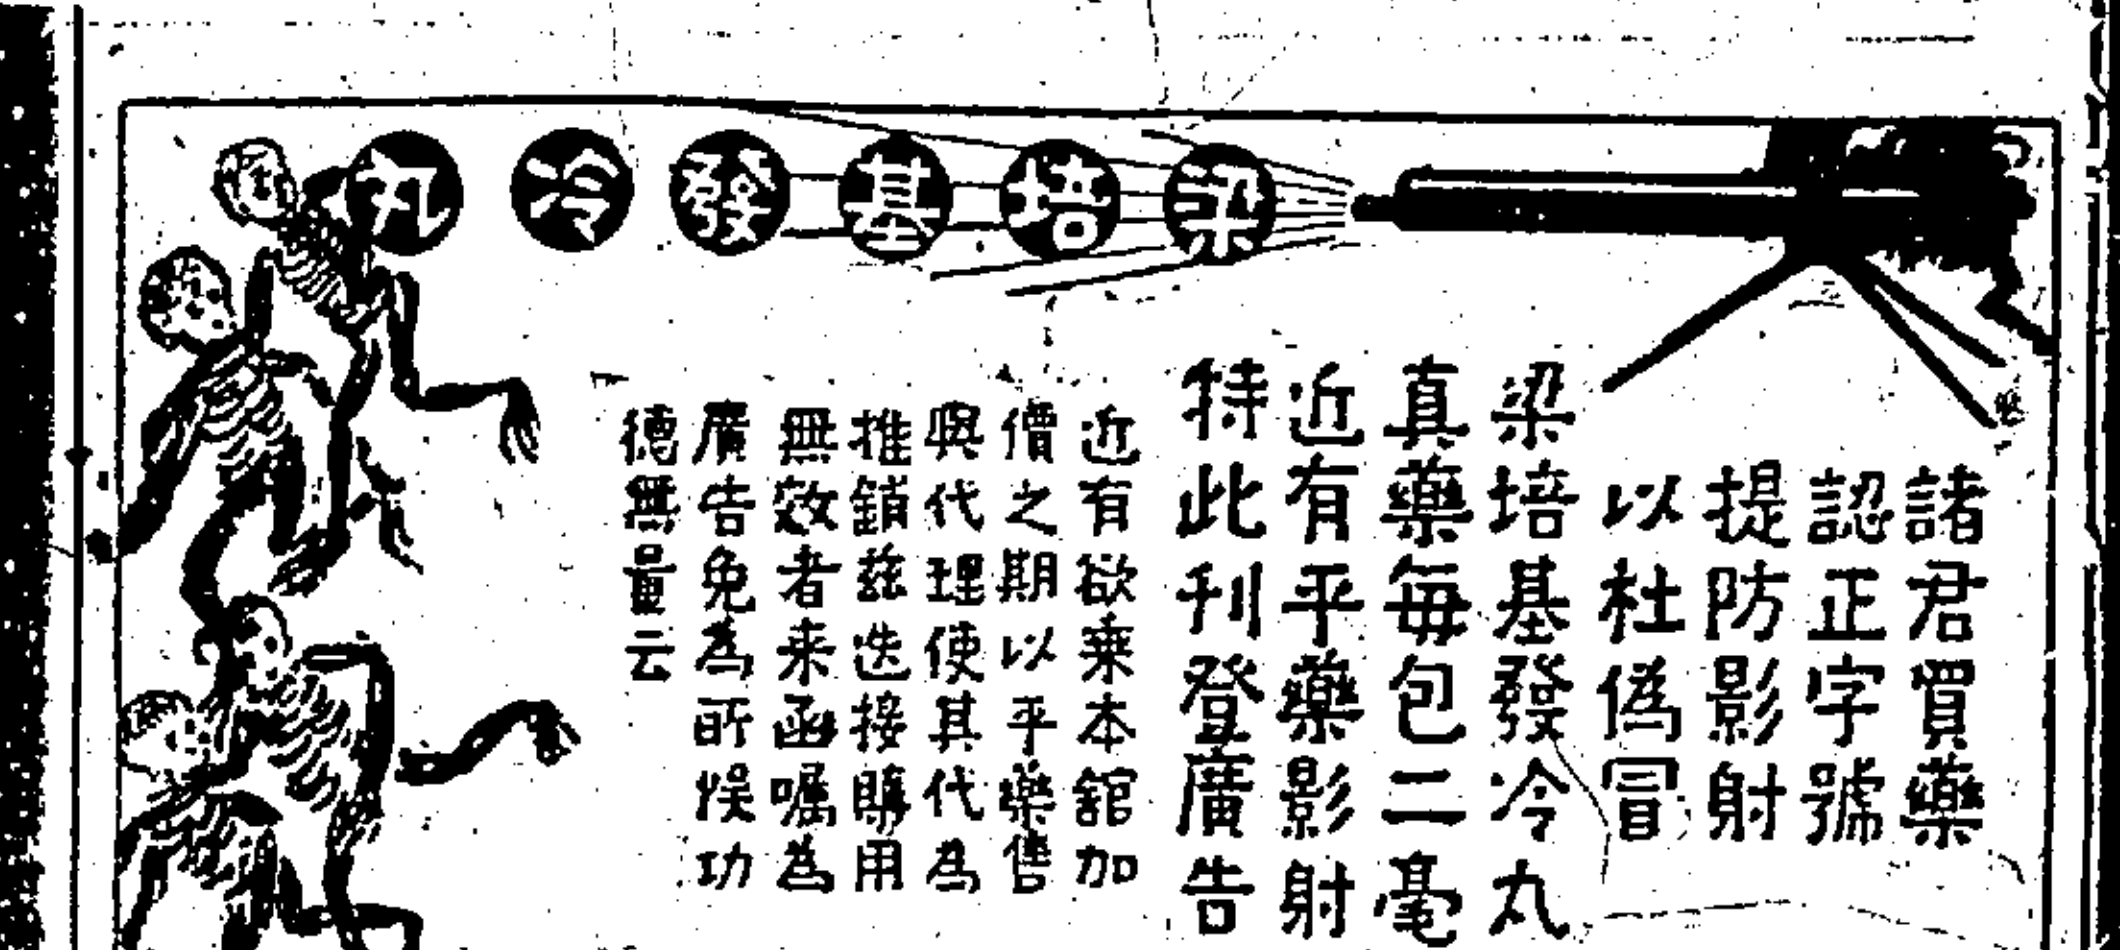 梁培基發冷丸
諸君買藥
認正字號
提防影射
以杜偽冒
梁培基發冷丸
真藥每包二毫
近有平藥影射
特此刊登廣告
近有欲乘本館加
價之期以平藥售
與代理使其代為
推銷茲迭接購用
無效者來函囑為
廣告免為所悞功
德無量云